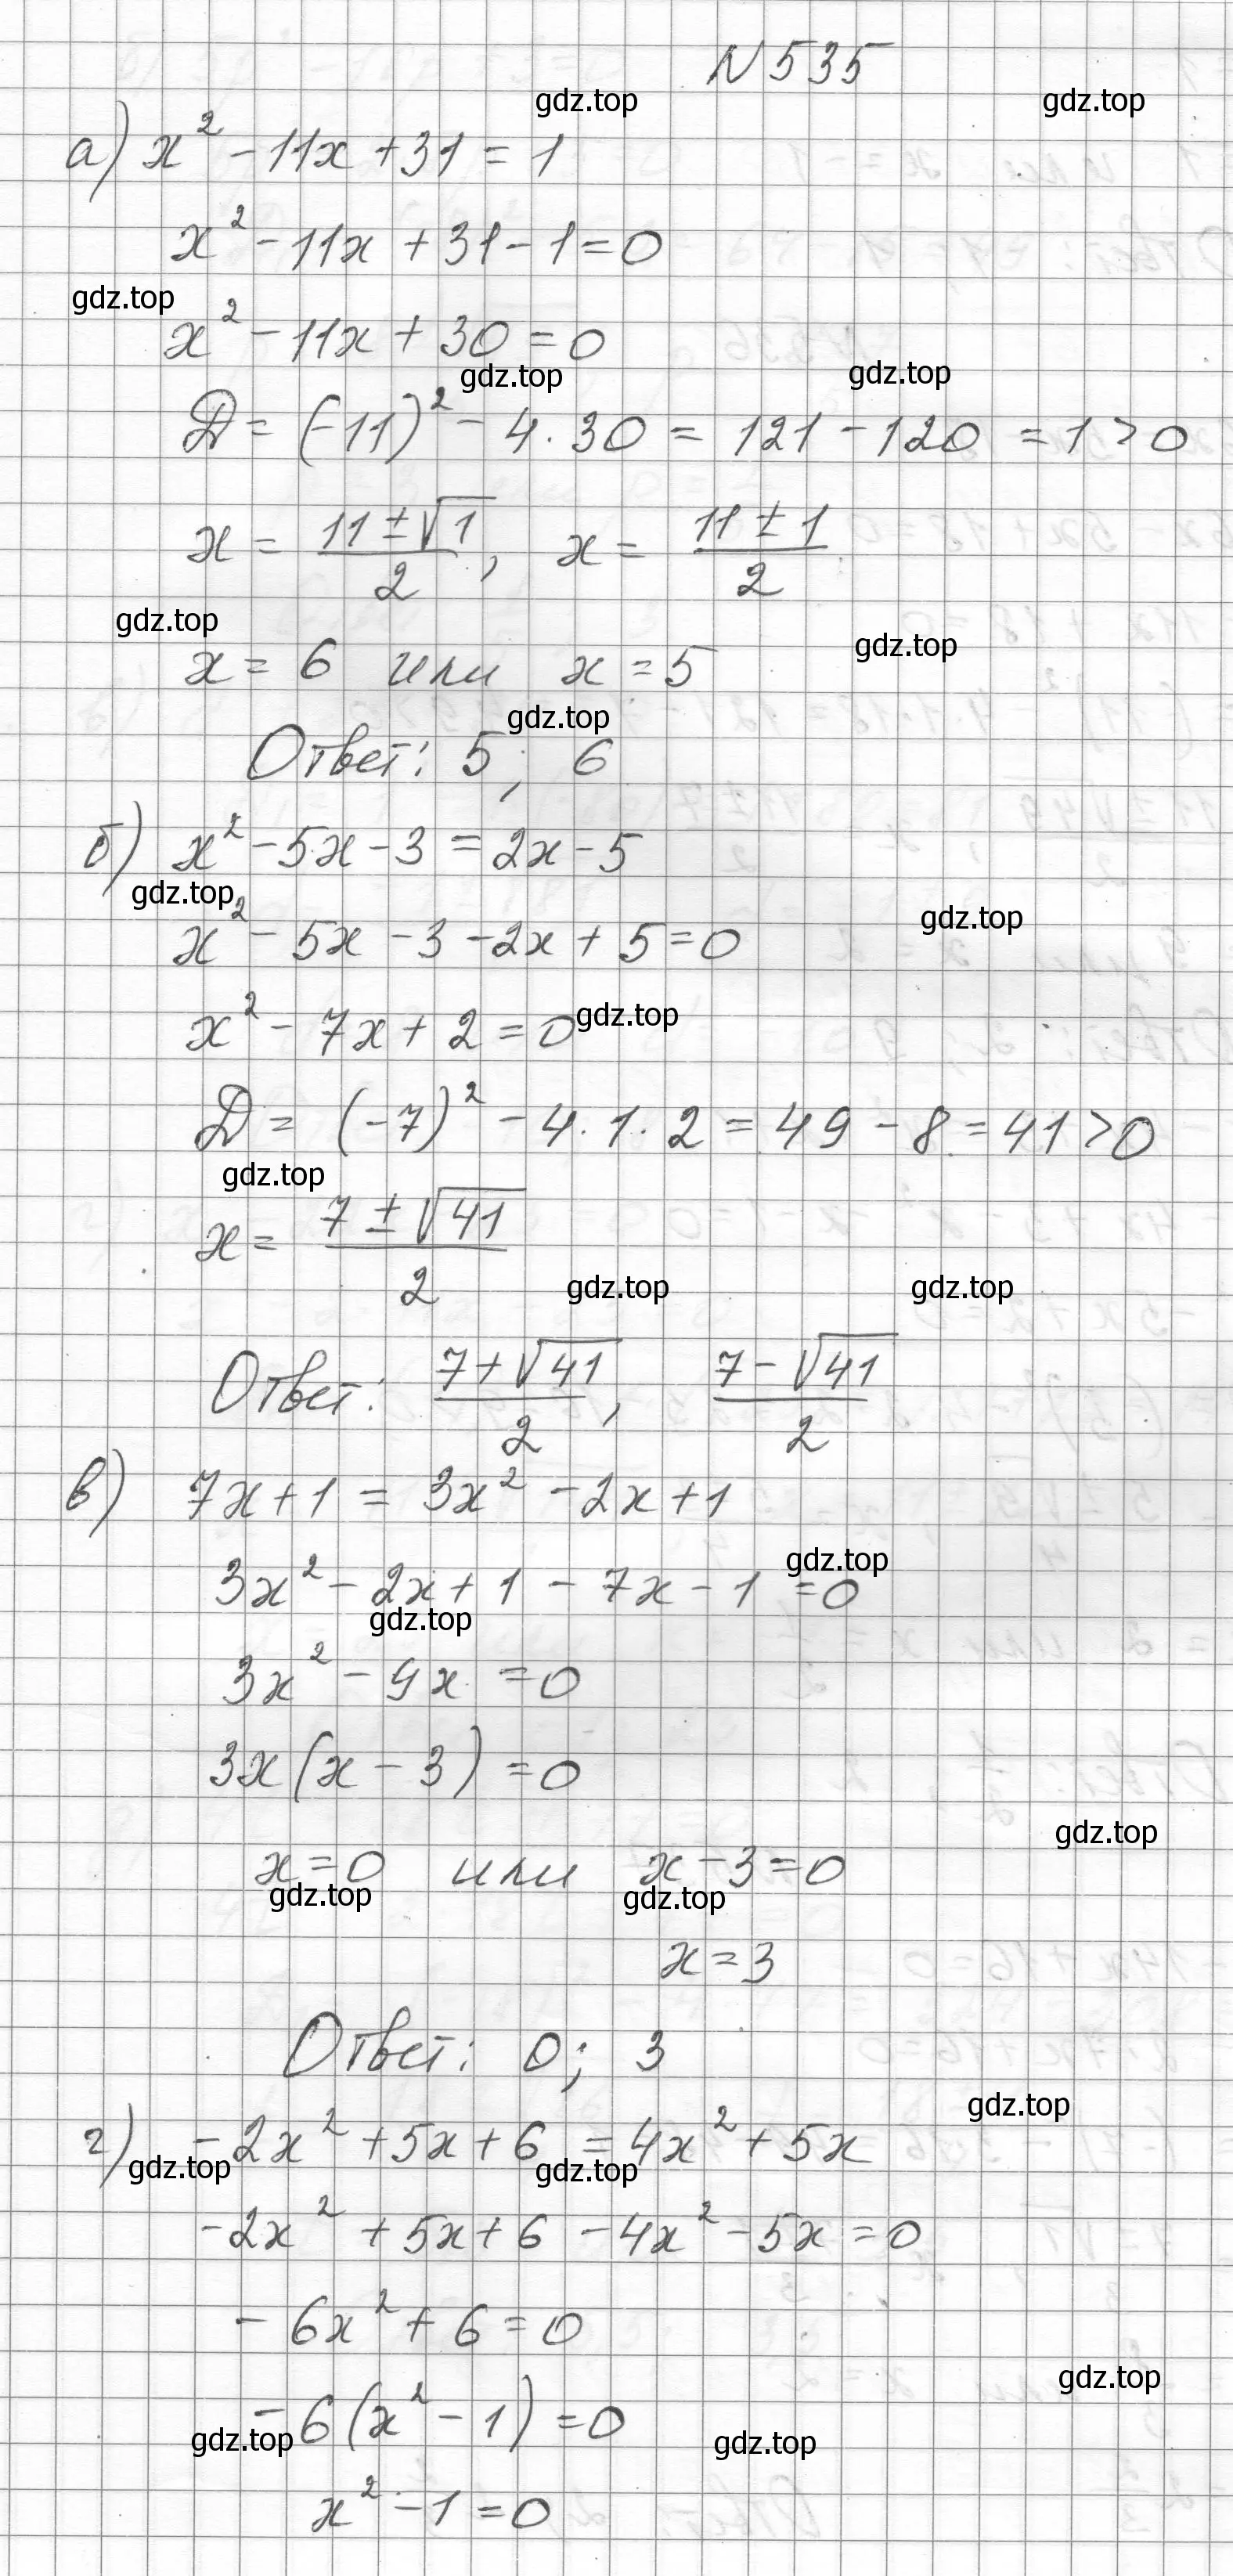 N 535
gdz.top gdz.top
а) x² - 11x + 31 = 1
x² - 11x + 31 - 1 = 0
gdz.top
x² - 11x + 30 = 0
gdz.top gdz.top
D = (-11)² - 4 · 30 = 121 - 120 = 1 > 0
x = (11 ± √1)/2, x = (11 ± 1)/2
gdz.top gdz.top
x = 6 или x = 5
gdz.top
Ответ: 5; 6
б) x² - 5x - 3 = 2x - 5
gdz.top gdz.top
x² - 5x - 3 - 2x + 5 = 0
x² - 7x + 2 = 0 gdz.top
D = (-7)² - 4 · 1 · 2 = 49 - 8 = 41 > 0
gdz.top
x = (7 ± √41)/2
gdz.top gdz.top
Ответ: (7 + √41)/2, (7 - √41)/2
в) 7x + 1 = 3x² - 2x + 1
gdz.top
3x² - 2x + 1 - 7x - 1 = 0
gdz.top
3x² - 9x = 0
3x(x - 3) = 0
gdz.top
x = 0 или x - 3 = 0
gdz.top gdz.top
x = 3
Ответ: 0; 3
gdz.top
г) -2x² + 5x + 6 = 4x² + 5x
gdz.top gdz.top
-2x² + 5x + 6 - 4x² - 5x = 0
-6x² + 6 = 0
gdz.top
-6(x² - 1) = 0
gdz.top gdz.top
x² - 1 = 0